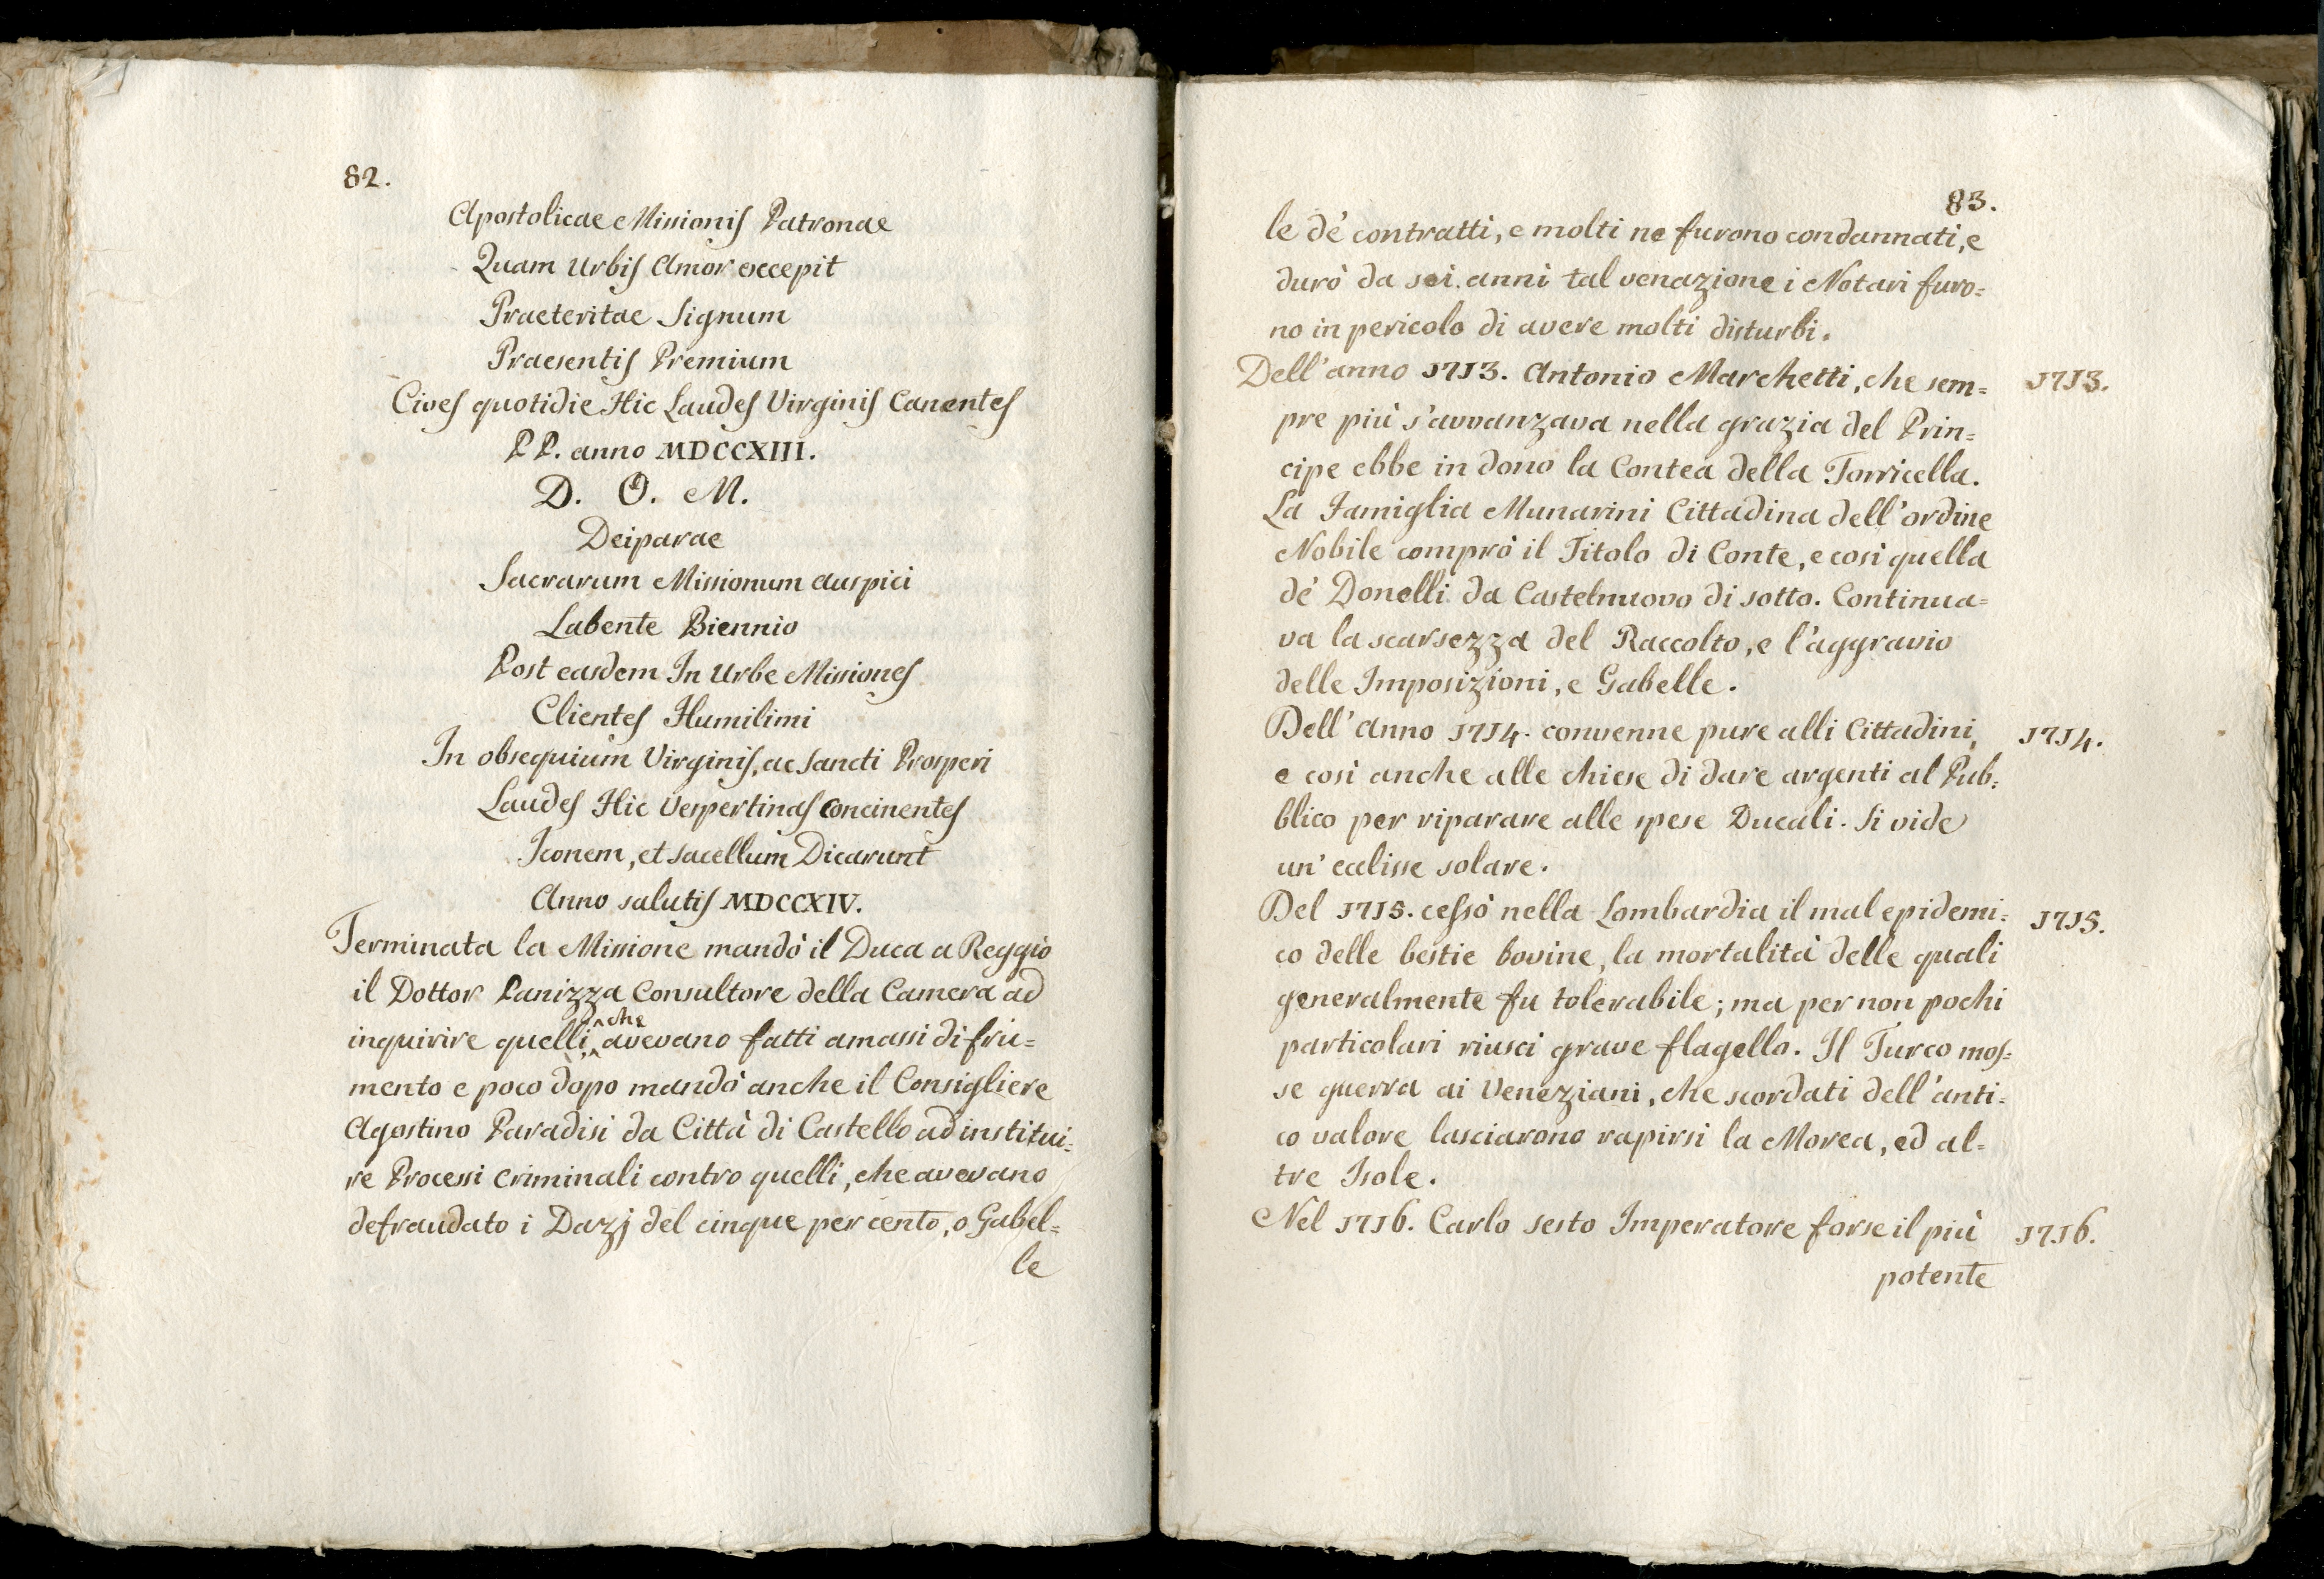 82.
Apostolicae Missionis Patronae
Quam Urbis Amor excepit
Praeteritae Signum
Praesentis Premium
Cives quotidie Hic Laudes Virginis Canentes
P P. anno MDCCXIII.
D. O. M.
Deiparae
Sacrarum Missionum auspici
Labente Biennio
Post easdem In Urbe Missiones
Clientes Humilimi
In obsequium Virginis, ac Sancti Prosperi
Laudes Hic Vespertinas Concinentes
Iconem, et sacellum Dicarunt
Anno salutis MDCCXIV.
Terminata la Missione mandò il Duca a Reggio
il Dottor Panizza Consultore della Camera ad
inquirire quelli, che avevano fatti amassi di fru=
mento e poco dopo mandò anche il Consigliere
Agostino Paradisi da Città di Castello ad institui=
re Processi Criminali contro quelli, che avevano
defraudato i Dazj del cinque per cento, o Gabel=
le
83.
le de' contratti, e molti ne furono condannati, e
durò da sei anni tal venazione i Notari furo=
no in pericolo di avere molti disturbi.
Dell'anno 1713. Antonio Marchetti, che sem= 1713.
pre più s'avvanzava nella grazia del Prin=
cipe ebbe in dono la Contea della Torricella.
La Famiglia Munarini Cittadina dell'ordine
Nobile comprò il Titolo di Conte, e così quella
de' Donelli da Castelnuovo di sotto. Continua=
va la scarsezza del Raccolto, e l'aggravio
delle Imposizioni, e Gabelle.
Dell'Anno 1714. convenne pure alli Cittadini, 1714.
e così anche alle chiese di dare argenti al Pub=
blico per riparare alle spese Ducali. Si vide
un'ecclisse solare.
Del 1715. cessò nella Lombardia il mal epidemi= 1715.
co delle bestie bovine, la mortalità delle quali
generalmente fu tolerabile; ma per non pochi
particolari riuscì grave flagello. Il Turco mos=
se guerra ai Veneziani, che scordati dell'anti=
co valore lasciarono rapirsi la Morea, ed al=
tre Isole.
Nel 1716. Carlo sesto Imperatore forse il più 1716.
potente